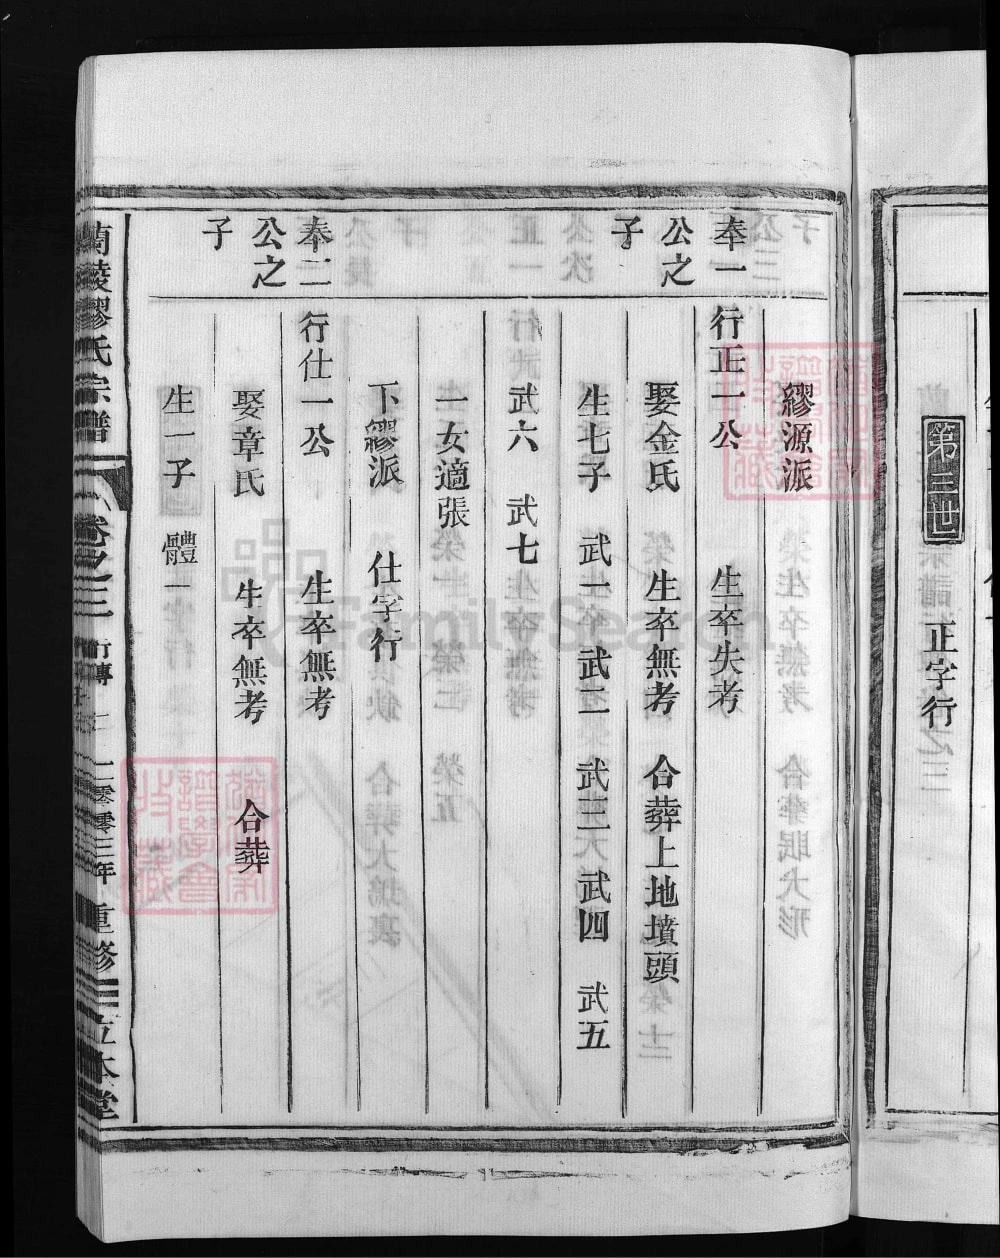 第三世 正字行
繆源派
奉一公之子
行正一公 生卒失考
娶金氏 生卒無考 合葬上地墳頭
生七子 武一 武二 武三 武四 武五
武六 武七
一女適張
下繆派 仕字行
奉二公之子
行仕一公 生卒無考
娶章氏 生卒無考 合葬
生一子 體一
蘭陵繆氏宗譜 卷之三 行傳 二零零三年重修 立本堂
FamilySearch